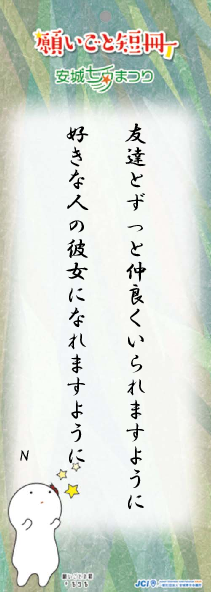 願いごと短冊
安城七夕まつり
友達とずっと仲良くいられますように
好きな人の彼女になれますように
N
JCI